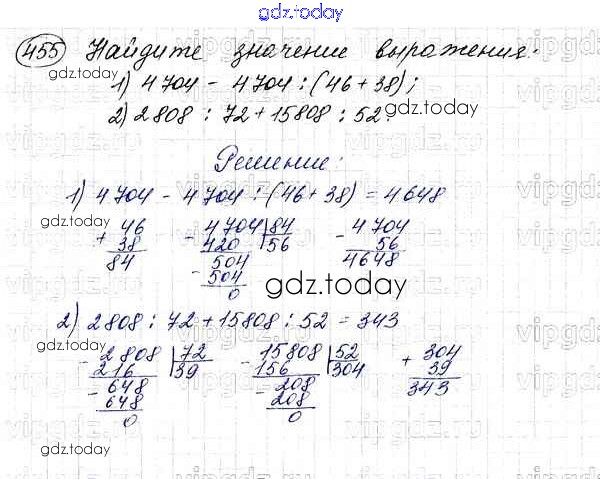 gdz.today
455 Найдите значение выражения:
gdz.today
1) 4 704 - 4 704 : (46 + 38);
2) 2 808 : 72 + 15808 : 52.
gdz.today
Решение:
1) 4 704 - 4 704 : (46 + 38) = 4 648
+ 46
38
84
gdz.today
- 4 704 | 84
420 | 56
- 504
504
0
- 4 704
56
4648
gdz.today
2) 2 808 : 72 + 15808 : 52 = 343
gdz.today
- 2 808 | 72
216 | 39
- 648
648
0
- 15808 | 52
156 | 304
- 208
208
0
+ 304
39
343
gdz.today
gdz.today